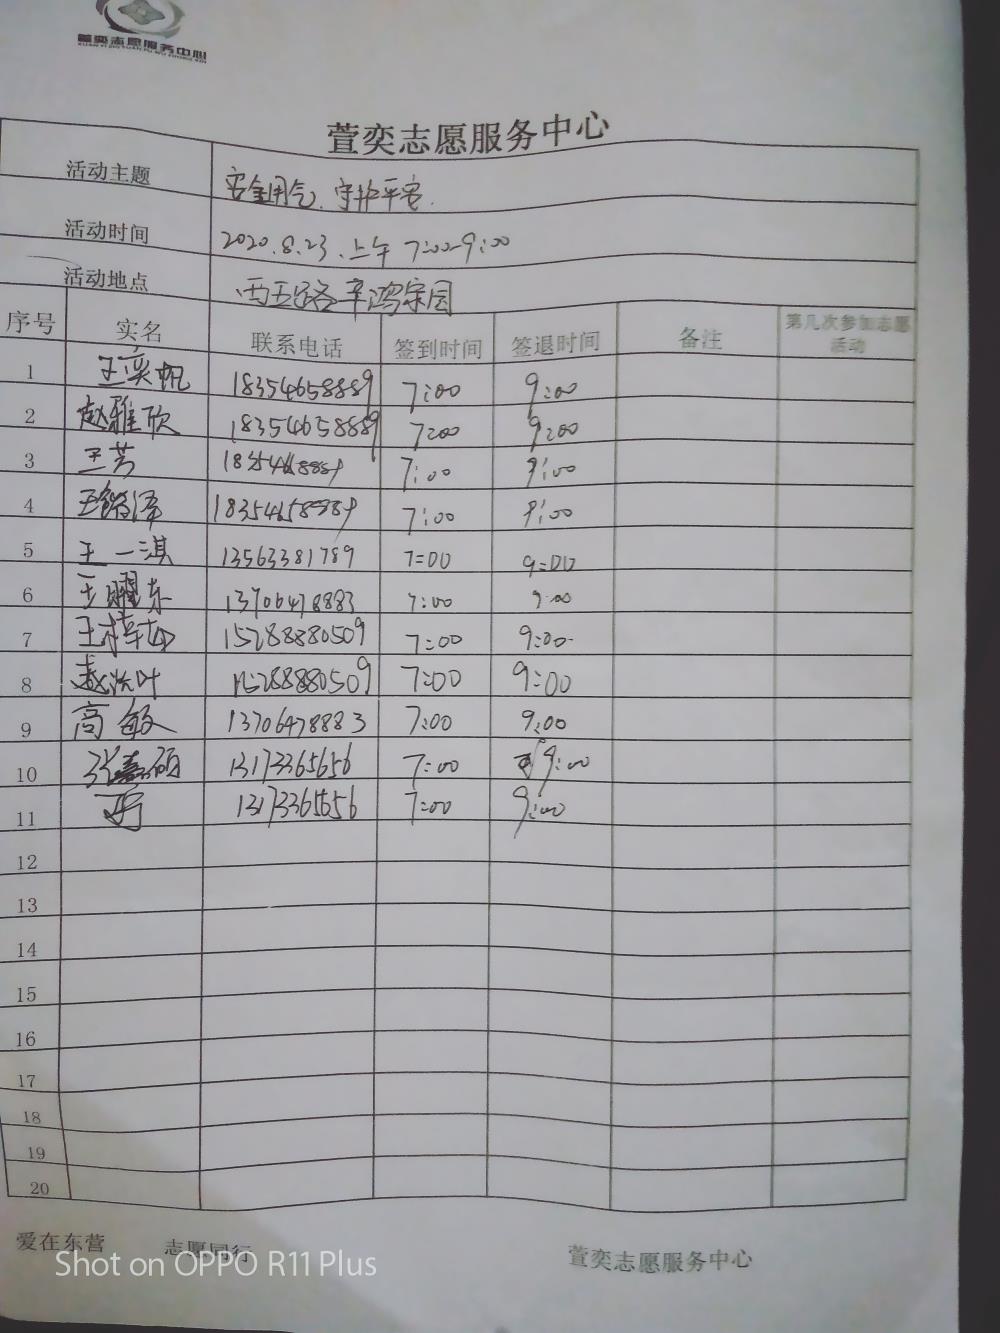 萱奕志愿服务中心
XUAN YI ZHI YUAN FU WU ZHONG XIN
萱奕志愿服务中心
活动主题 安全用气、守护平安.
活动时间 2020.8.23.上午 7:00-9:00
活动地点 西五路辛鸿家园
序号 实名 联系电话 签到时间 签退时间 备注 第几次参加志愿活动
1 王奕帆 18354658889 7:00 9:00
2 赵雅欣 18354658889 7:00 9:00
3 王芳 18354658889 7:00 9:00
4 18354658889 7:00 9:00
5 王一淇 13563381789 7:00 9:00
6 王曜东 13706478883 7:00 9:00
7 15288880509 7:00 9:00
8 15288880509 7:00 9:00
9 高敏 13706478883 7:00 9:00
10 张嘉硕 13173365656 7:00 9:00
11 13173365656 7:00 9:00
12
13
14
15
16
17
18
19
20
爱在东营 志愿同行 萱奕志愿服务中心
Shot on OPPO R11 Plus